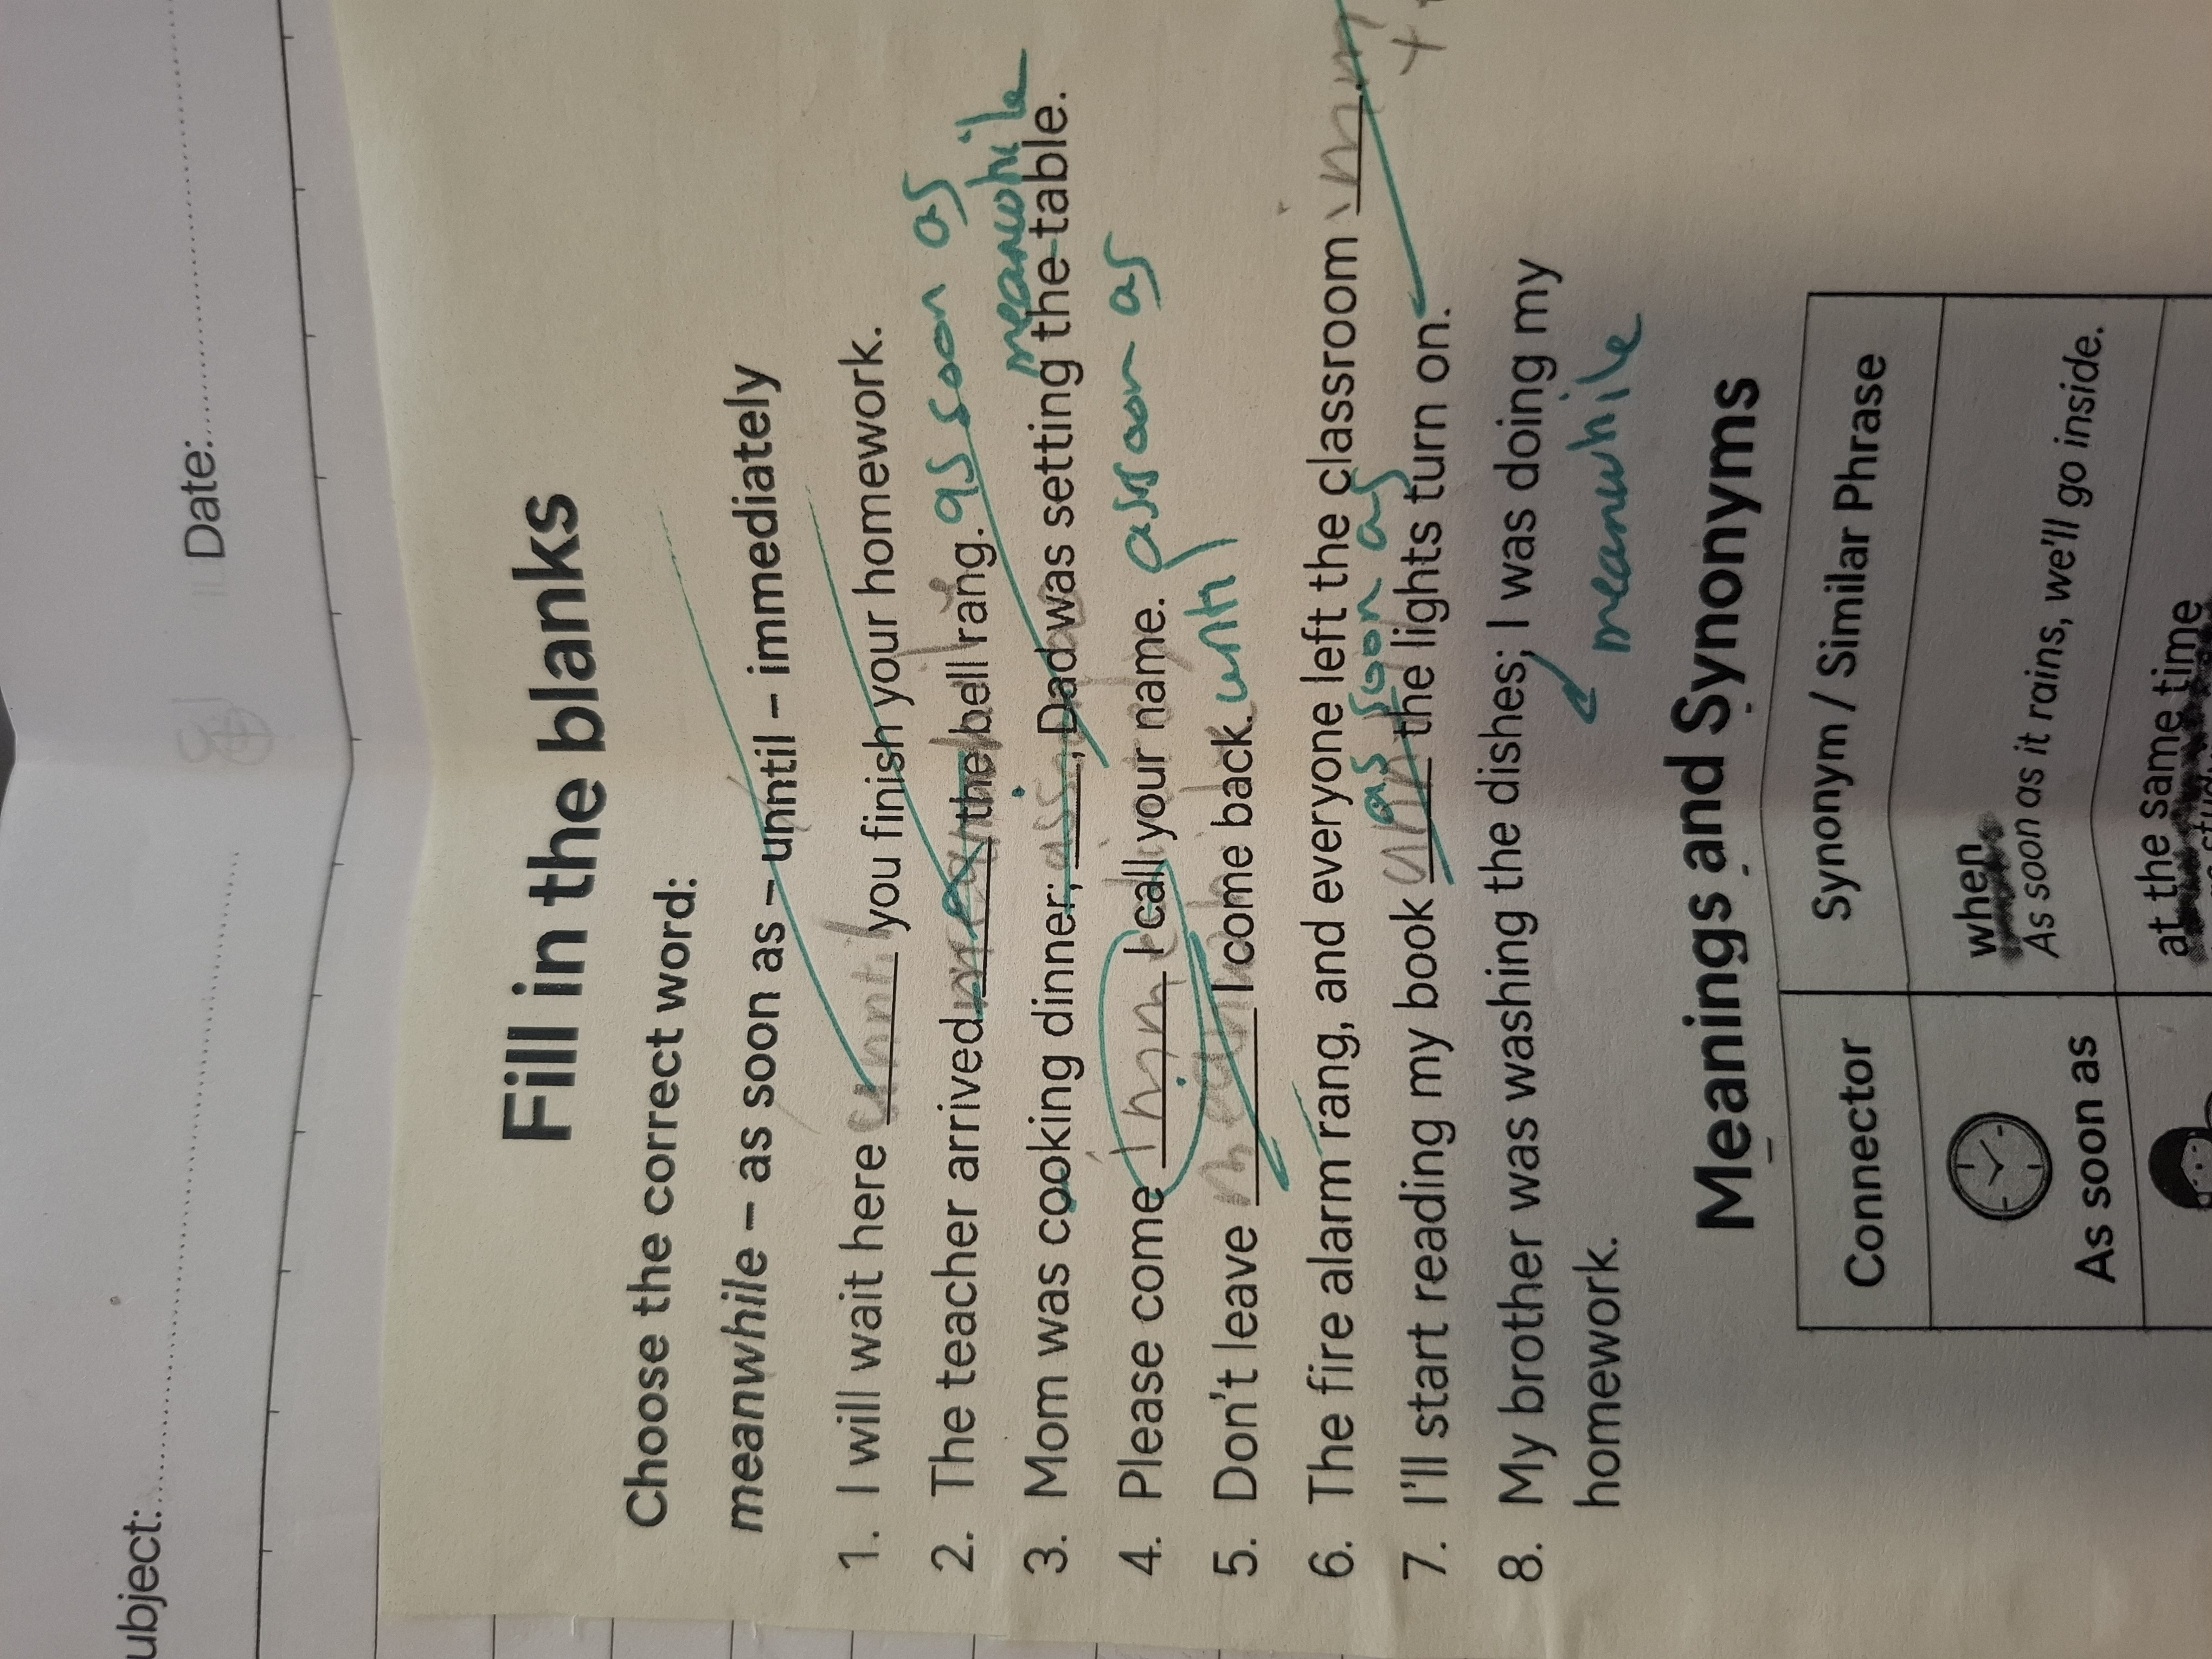 ubject:
Date:
Fill in the blanks
Choose the correct word:
meanwhile – as soon as – until – immediately
1. I will wait here until you finish your homework.
2. The teacher arrived the bell rang. as soon as
meanwhile
3. Mom was cooking dinner; , Dad was setting the table.
4. Please come I call your name. as soon as
5. Don't leave I come back. until
6. The fire alarm rang, and everyone left the classroom
as soon as
7. I'll start reading my book the lights turn on.
8. My brother was washing the dishes; I was doing my
homework.
meanwhile
Meanings and Synonyms
Connector Synonym / Similar Phrase
As soon as when
As soon as it rains, we'll go inside.
at the same time